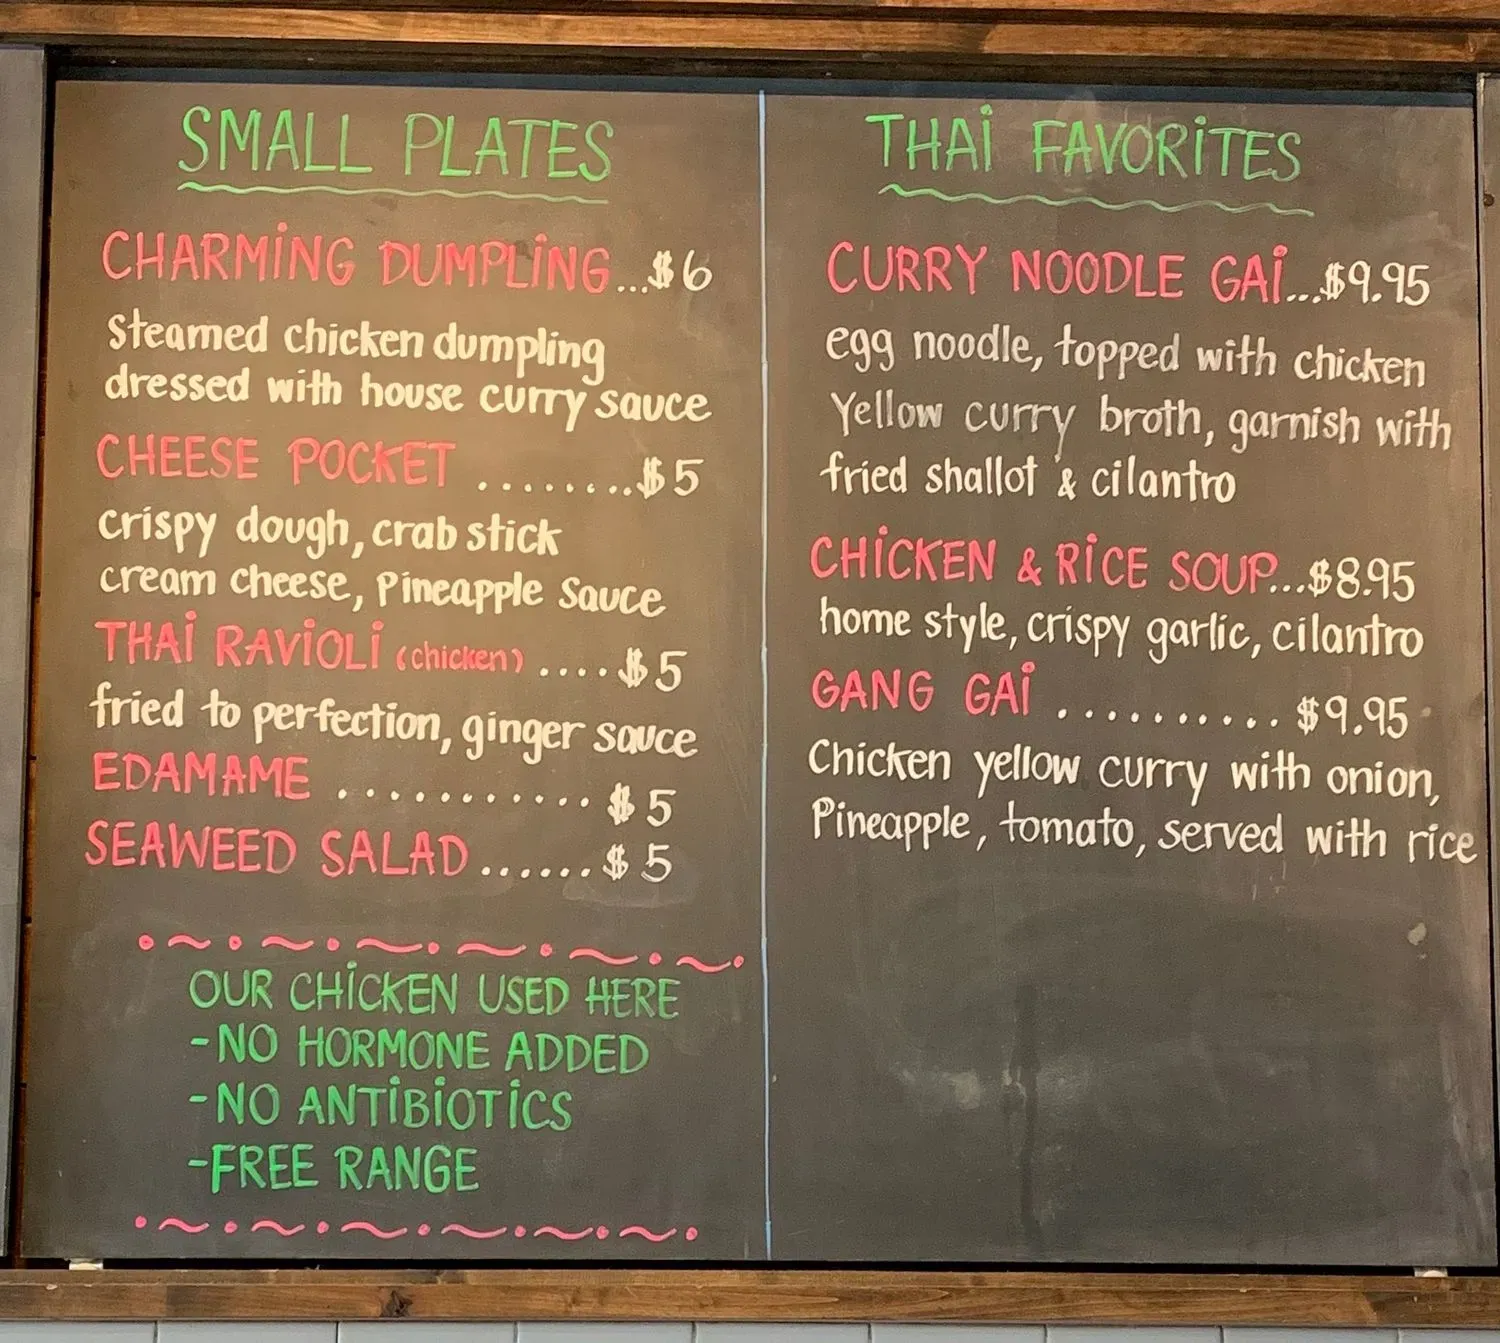 SMALL PLATES
CHARMiNG DUMPLiNG...$6
Steamed chicken dumpling
dressed with house curry sauce
CHEESE POCKET ........$5
crispy dough, crab stick
cream cheese, Pineapple Sauce
THAi RAViOLi (chicken) ....$5
fried to perfection, ginger sauce
EDAMAME ............ $5
SEAWEED SALAD ...... $5
OUR CHiCKEN USED HERE
-NO HORMONE ADDED
-NO ANTiBiOTiCS
-FREE RANGE
THAi FAVORiTES
CURRY NOODLE GAi...$9.95
egg noodle, topped with chicken
Yellow curry broth, garnish with
fried shallot & cilantro
CHiCKEN & RiCE SOUP...$8.95
home style, crispy garlic, cilantro
GANG GAi .......... $9.95
Chicken yellow curry with onion,
Pineapple, tomato, served with rice